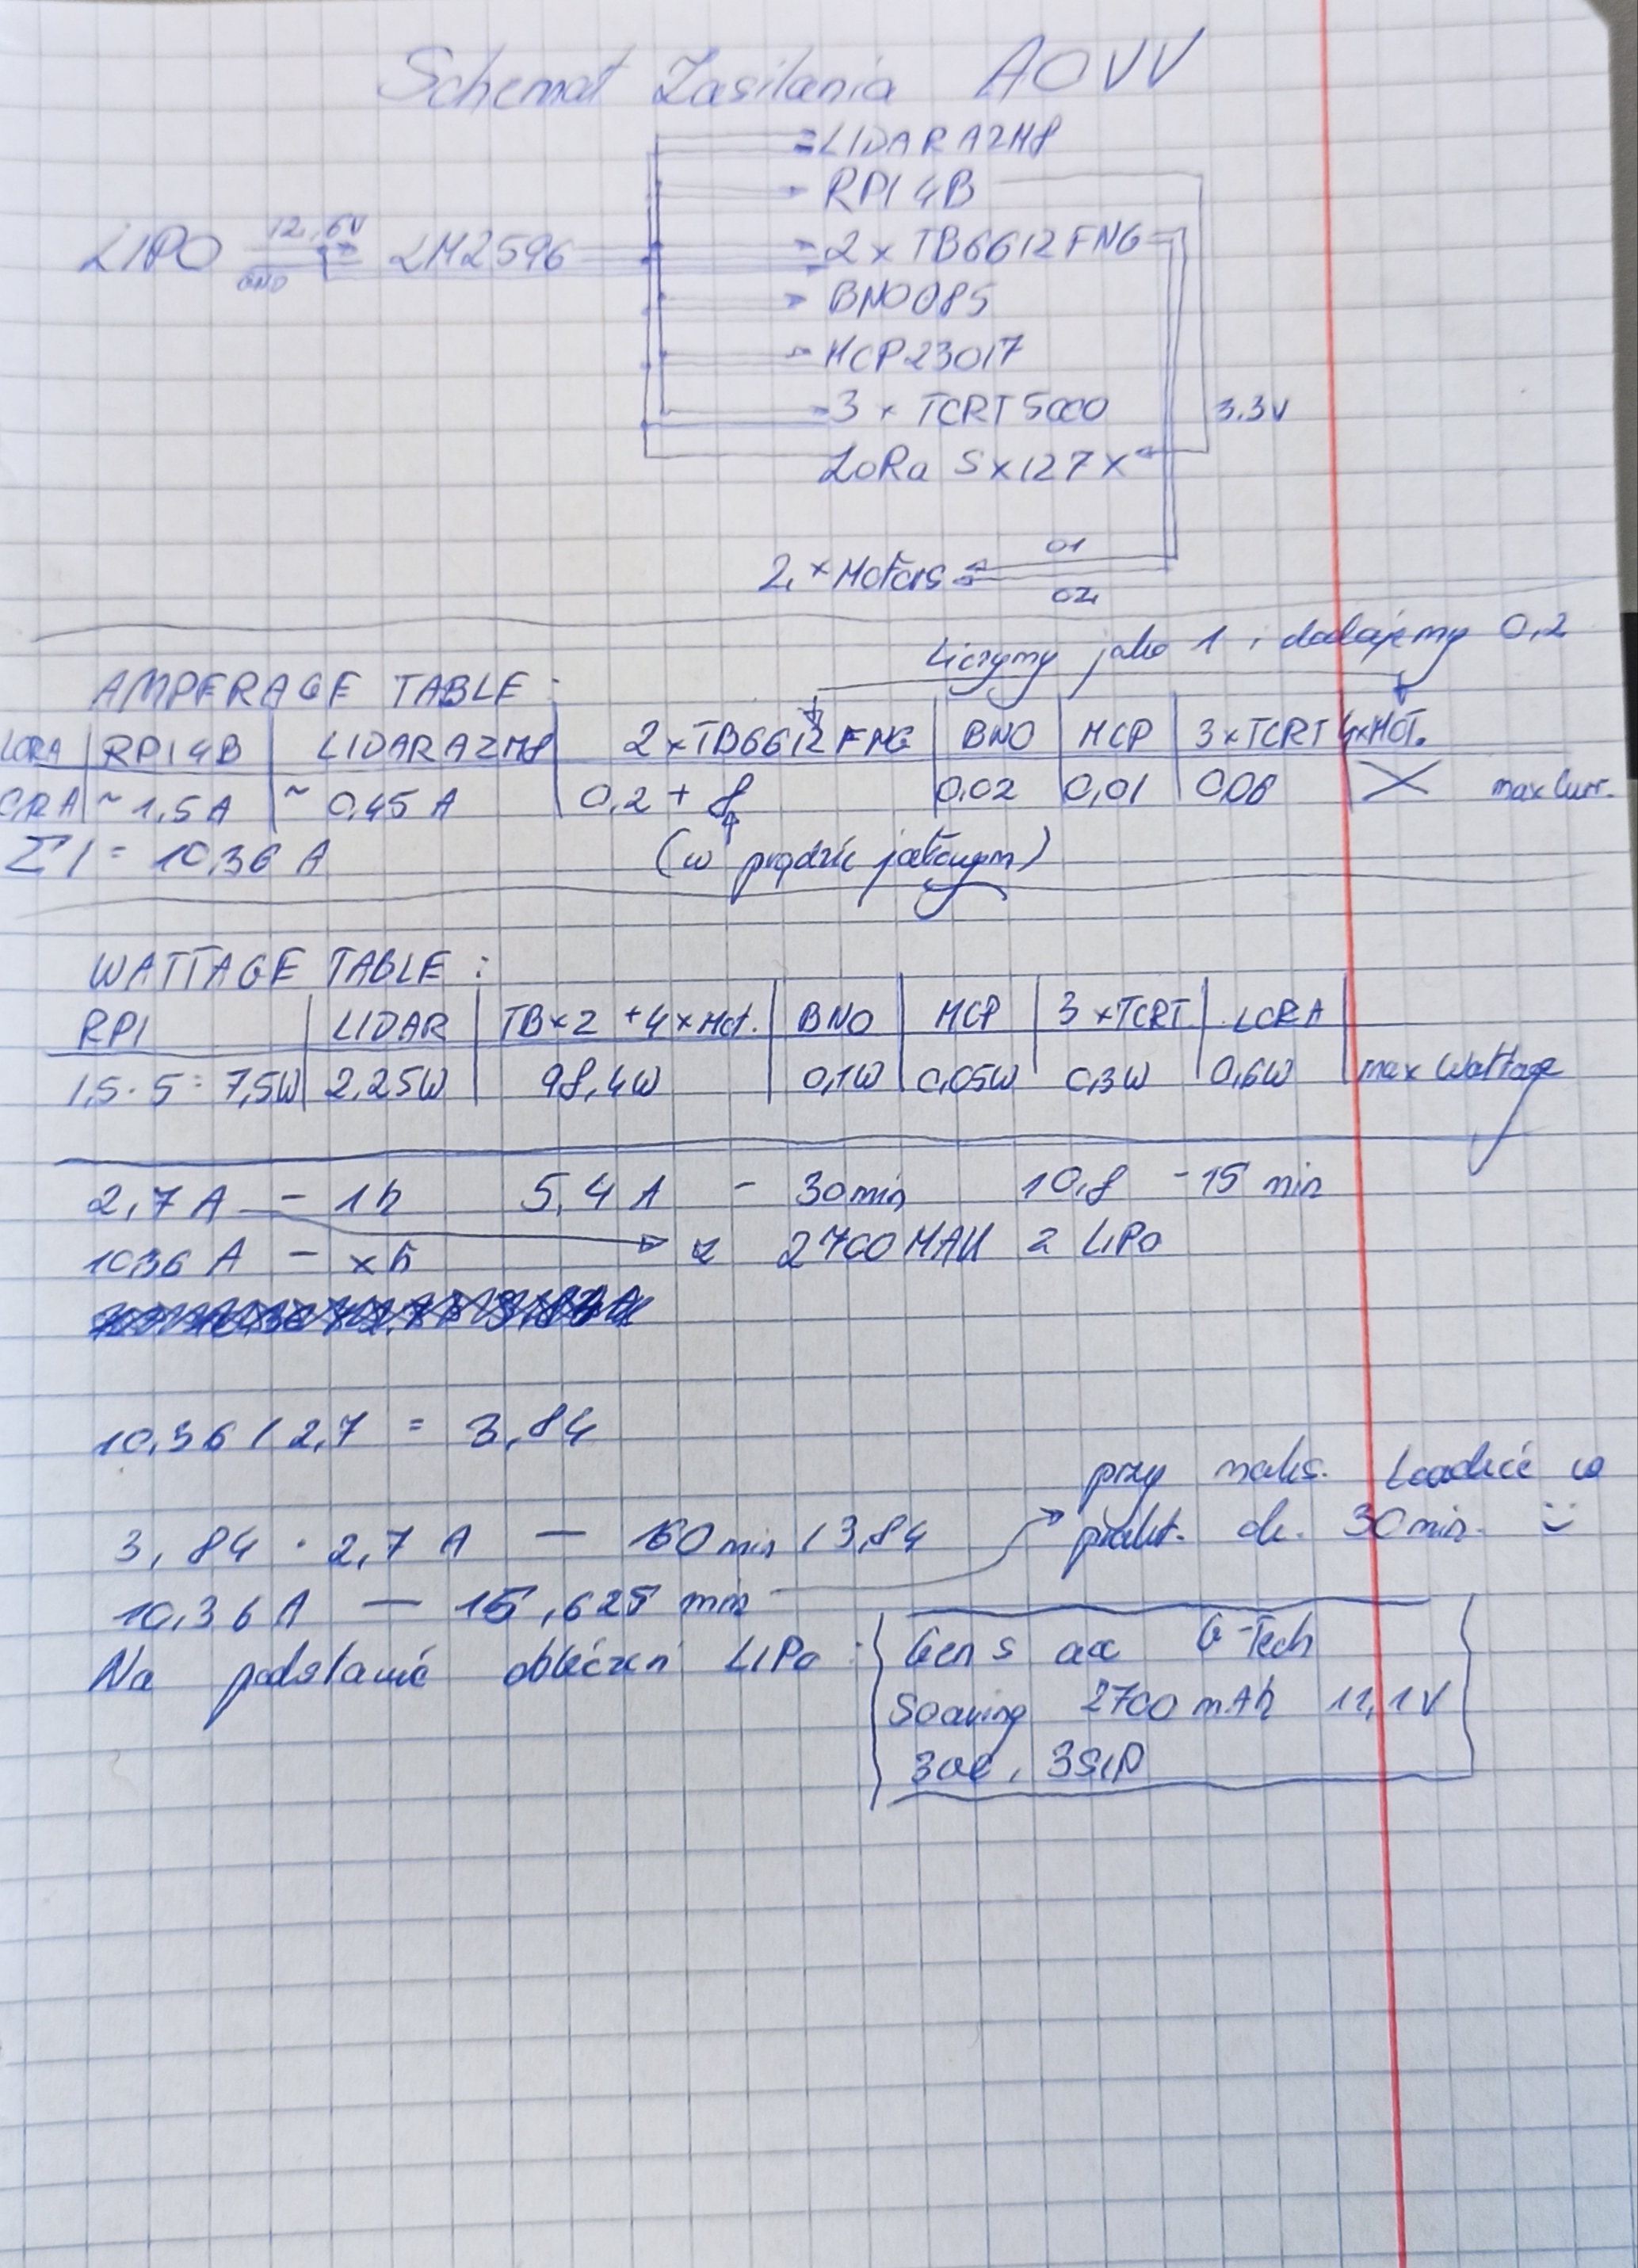 Schemat Zasilania AOVV
LIDAR A2M8
RPI 4B
LIPO 12,6V GND LM2596 2 x TB6612FNG
BNO085
MCP23017
3 x TCRT5000 3.3V
LoRa Sx127x
01
2 x Motors
02
Liczymy jako 1 i dodajemy 0,2
AMPERAGE TABLE:
LORA RPI 4B LIDAR A2M8 2xTB6612FNG BNO MCP 3xTCRT 4xMOT.
~ 1,5 A ~ 0,45 A 0,2 + 8 0,02 0,01 0,06 X max Curr.
Σ I = 10,36 A (w prądzie jałowym)
WATTAGE TABLE:
RPI LIDAR TBx2 + 4xMot. BNO MCP 3xTCRT LORA
1,5 · 5 = 7,5W 2,25W 98,4W 0,1W 0,05W 0,3W 0,6W max Wattage
2,7 A - 1h 5,4 A - 30min 10,8 - 15 min
1036 A - xh z 2700 MAH z LIPo
10,36 / 2,7 = 3,84
przy maks. Loadzie w
3,84 · 2,7 A — 60 min / 3,84 prakt. ok. 30 min. :)
10,36 A — 15,625 min
Na podstawie obliczeń LIPo: Gens ace G-Tech
Soaring 2700 mAh 11,1V
30C, 3S1P